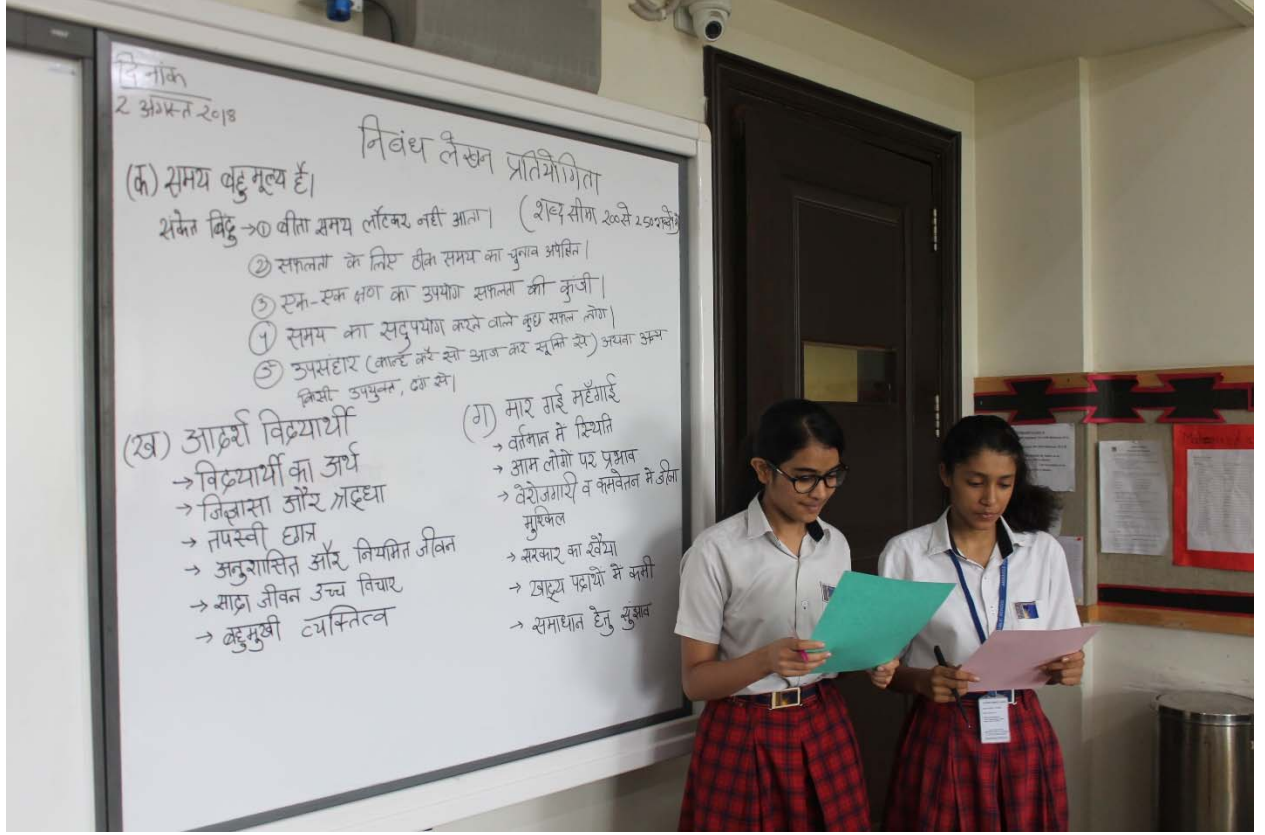 दिनांक
2 अगस्त 2018
निबंध लेखन प्रतियोगिता
(क) समय बहुमूल्य है।
(शब्द सीमा 200 से 250 शब्दों में
संकेत बिंदु → ① बीता समय लौटकर नहीं आता।
② सफलता के लिए ठीक समय का चुनाव अपेक्षित।
③ एक-एक क्षण का उपयोग सफलता की कुंजी।
④ समय का सदुपयोग करने वाले कुछ सफल लोग।
⑤ उपसंहार (काल्ह करै सो आज कर सूक्ति से) अथवा अन्य
किसी उपयुक्त, ढंग से।
(ख) आदर्श विद्यार्थी
→ विद्यार्थी का अर्थ
→ जिज्ञासा और श्रद्धा
→ तपस्वी छात्र
→ अनुशासित और नियमित जीवन
→ सादा जीवन उच्च विचार
→ बहुमुखी व्यक्तित्व
(ग) मार गई महँगाई
→ वर्तमान में स्थिति
→ आम लोगो पर प्रभाव
→ बेरोजगारी व कमवेतन में जीना
मुश्किल
→ सरकार का रवैया
→ खाद्य पदार्थों में कमी
→ समाधान हेतु सुझाव